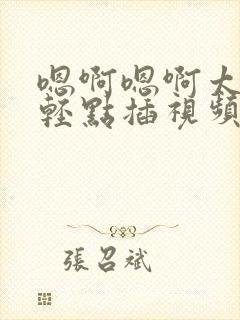 嗯啊嗯啊大
輕點插視頻
張召斌